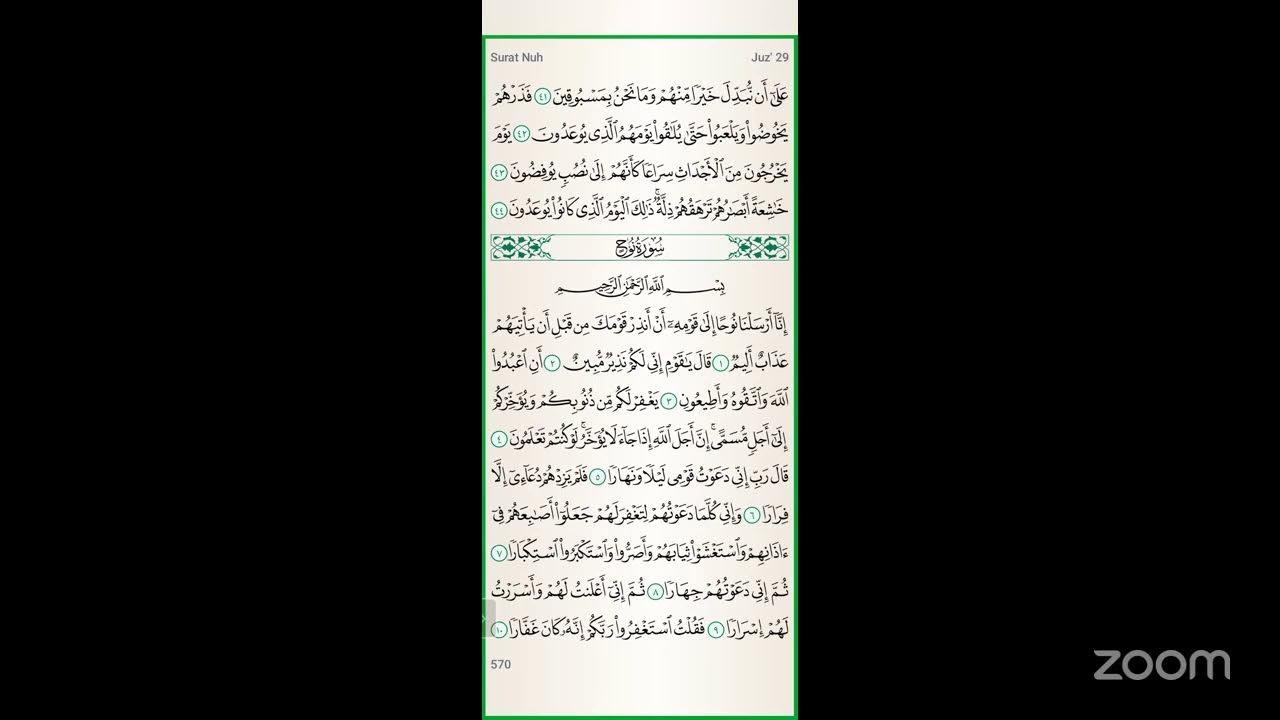 Surat Nuh
Juz' 29
عَلَىٰٓ أَن نُّبَدِّلَ خَيْرًا مِّنْهُمْ وَمَا نَحْنُ بِمَسْبُوقِينَ ٤١ فَذَرْهُمْ
يَخُوضُوا۟ وَيَلْعَبُوا۟ حَتَّىٰ يُلَٰقُوا۟ يَوْمَهُمُ ٱلَّذِى يُوعَدُونَ ٤٢ يَوْمَ
يَخْرُجُونَ مِنَ ٱلْأَجْدَاثِ سِرَاعًا كَأَنَّهُمْ إِلَىٰ نُصُبٍ يُوفِضُونَ ٤٣
خَٰشِعَةً أَبْصَٰرُهُمْ تَرْهَقُهُمْ ذِلَّةٌ ۚ ذَٰلِكَ ٱلْيَوْمُ ٱلَّذِى كَانُوا۟ يُوعَدُونَ ٤٤
سُورَةُ نُوحٍ
بِسْمِ ٱللَّهِ ٱلرَّحْمَٰنِ ٱلرَّحِيمِ
إِنَّآ أَرْسَلْنَا نُوحًا إِلَىٰ قَوْمِهِۦٓ أَنْ أَنذِرْ قَوْمَكَ مِن قَبْلِ أَن يَأْتِيَهُمْ
عَذَابٌ أَلِيمٌ ١ قَالَ يَٰقَوْمِ إِنِّى لَكُمْ نَذِيرٌ مُّبِينٌ ٢ أَنِ ٱعْبُدُوا۟
ٱللَّهَ وَٱتَّقُوهُ وَأَطِيعُونِ ٣ يَغْفِرْ لَكُم مِّن ذُنُوبِكُمْ وَيُؤَخِّرْكُمْ
إِلَىٰٓ أَجَلٍ مُّسَمًّى ۚ إِنَّ أَجَلَ ٱللَّهِ إِذَا جَآءَ لَا يُؤَخَّرُ ۖ لَوْ كُنتُمْ تَعْلَمُونَ ٤
قَالَ رَبِّ إِنِّى دَعَوْتُ قَوْمِى لَيْلًا وَنَهَارًا ٥ فَلَمْ يَزِدْهُمْ دُعَآءِىٓ إِلَّا
فِرَارًا ٦ وَإِنِّى كُلَّمَا دَعَوْتُهُمْ لِتَغْفِرَ لَهُمْ جَعَلُوٓا۟ أَصَٰبِعَهُمْ فِىٓ
ءَاذَانِهِمْ وَٱسْتَغْشَوْا۟ ثِيَابَهُمْ وَأَصَرُّوا۟ وَٱسْتَكْبَرُوا۟ ٱسْتِكْبَارًا ٧
ثُمَّ إِنِّى دَعَوْتُهُمْ جِهَارًا ٨ ثُمَّ إِنِّىٓ أَعْلَنتُ لَهُمْ وَأَسْرَرْتُ
لَهُمْ إِسْرَارًا ٩ فَقُلْتُ ٱسْتَغْفِرُوا۟ رَبَّكُمْ إِنَّهُۥ كَانَ غَفَّارًا ١٠
570
zoom